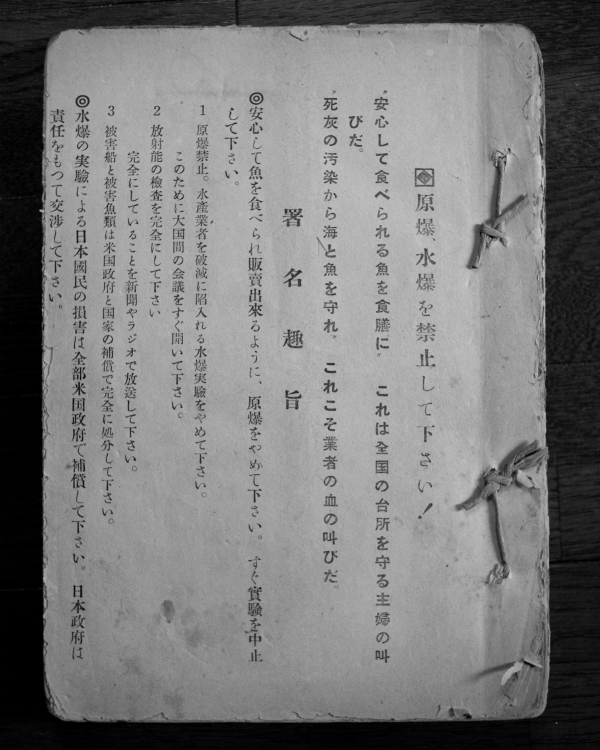 原爆、水爆を禁止して下さい！
〝安心して食べられる魚を食膳に〟　これは全国の台所を守る主婦の叫
びだ。
〝死灰の汚染から海と魚を守れ〟　これこそ業者の血の叫びだ。
署名趣旨
◎安心して魚を食べられ販賣出來るように、原爆をやめて下さい。すぐ實驗を中止
して下さい。
1　原爆禁止。水產業者を破滅に陷入れる水爆実驗をやめて下さい。
このために大国間の会議をすぐ開いて下さい。
2　放射能の検査を完全にして下さい
完全にしていることを新聞やラジオで放送して下さい。
3　被害船と被害魚類は米国政府と国家の補償で完全に処分して下さい。
◎水爆の実驗による日本國民の損害は全部米国政府で補償して下さい。　日本政府は
責任をもつて交渉して下さい。